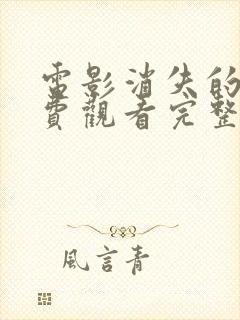 電影消失的
費觀看完整
風言青